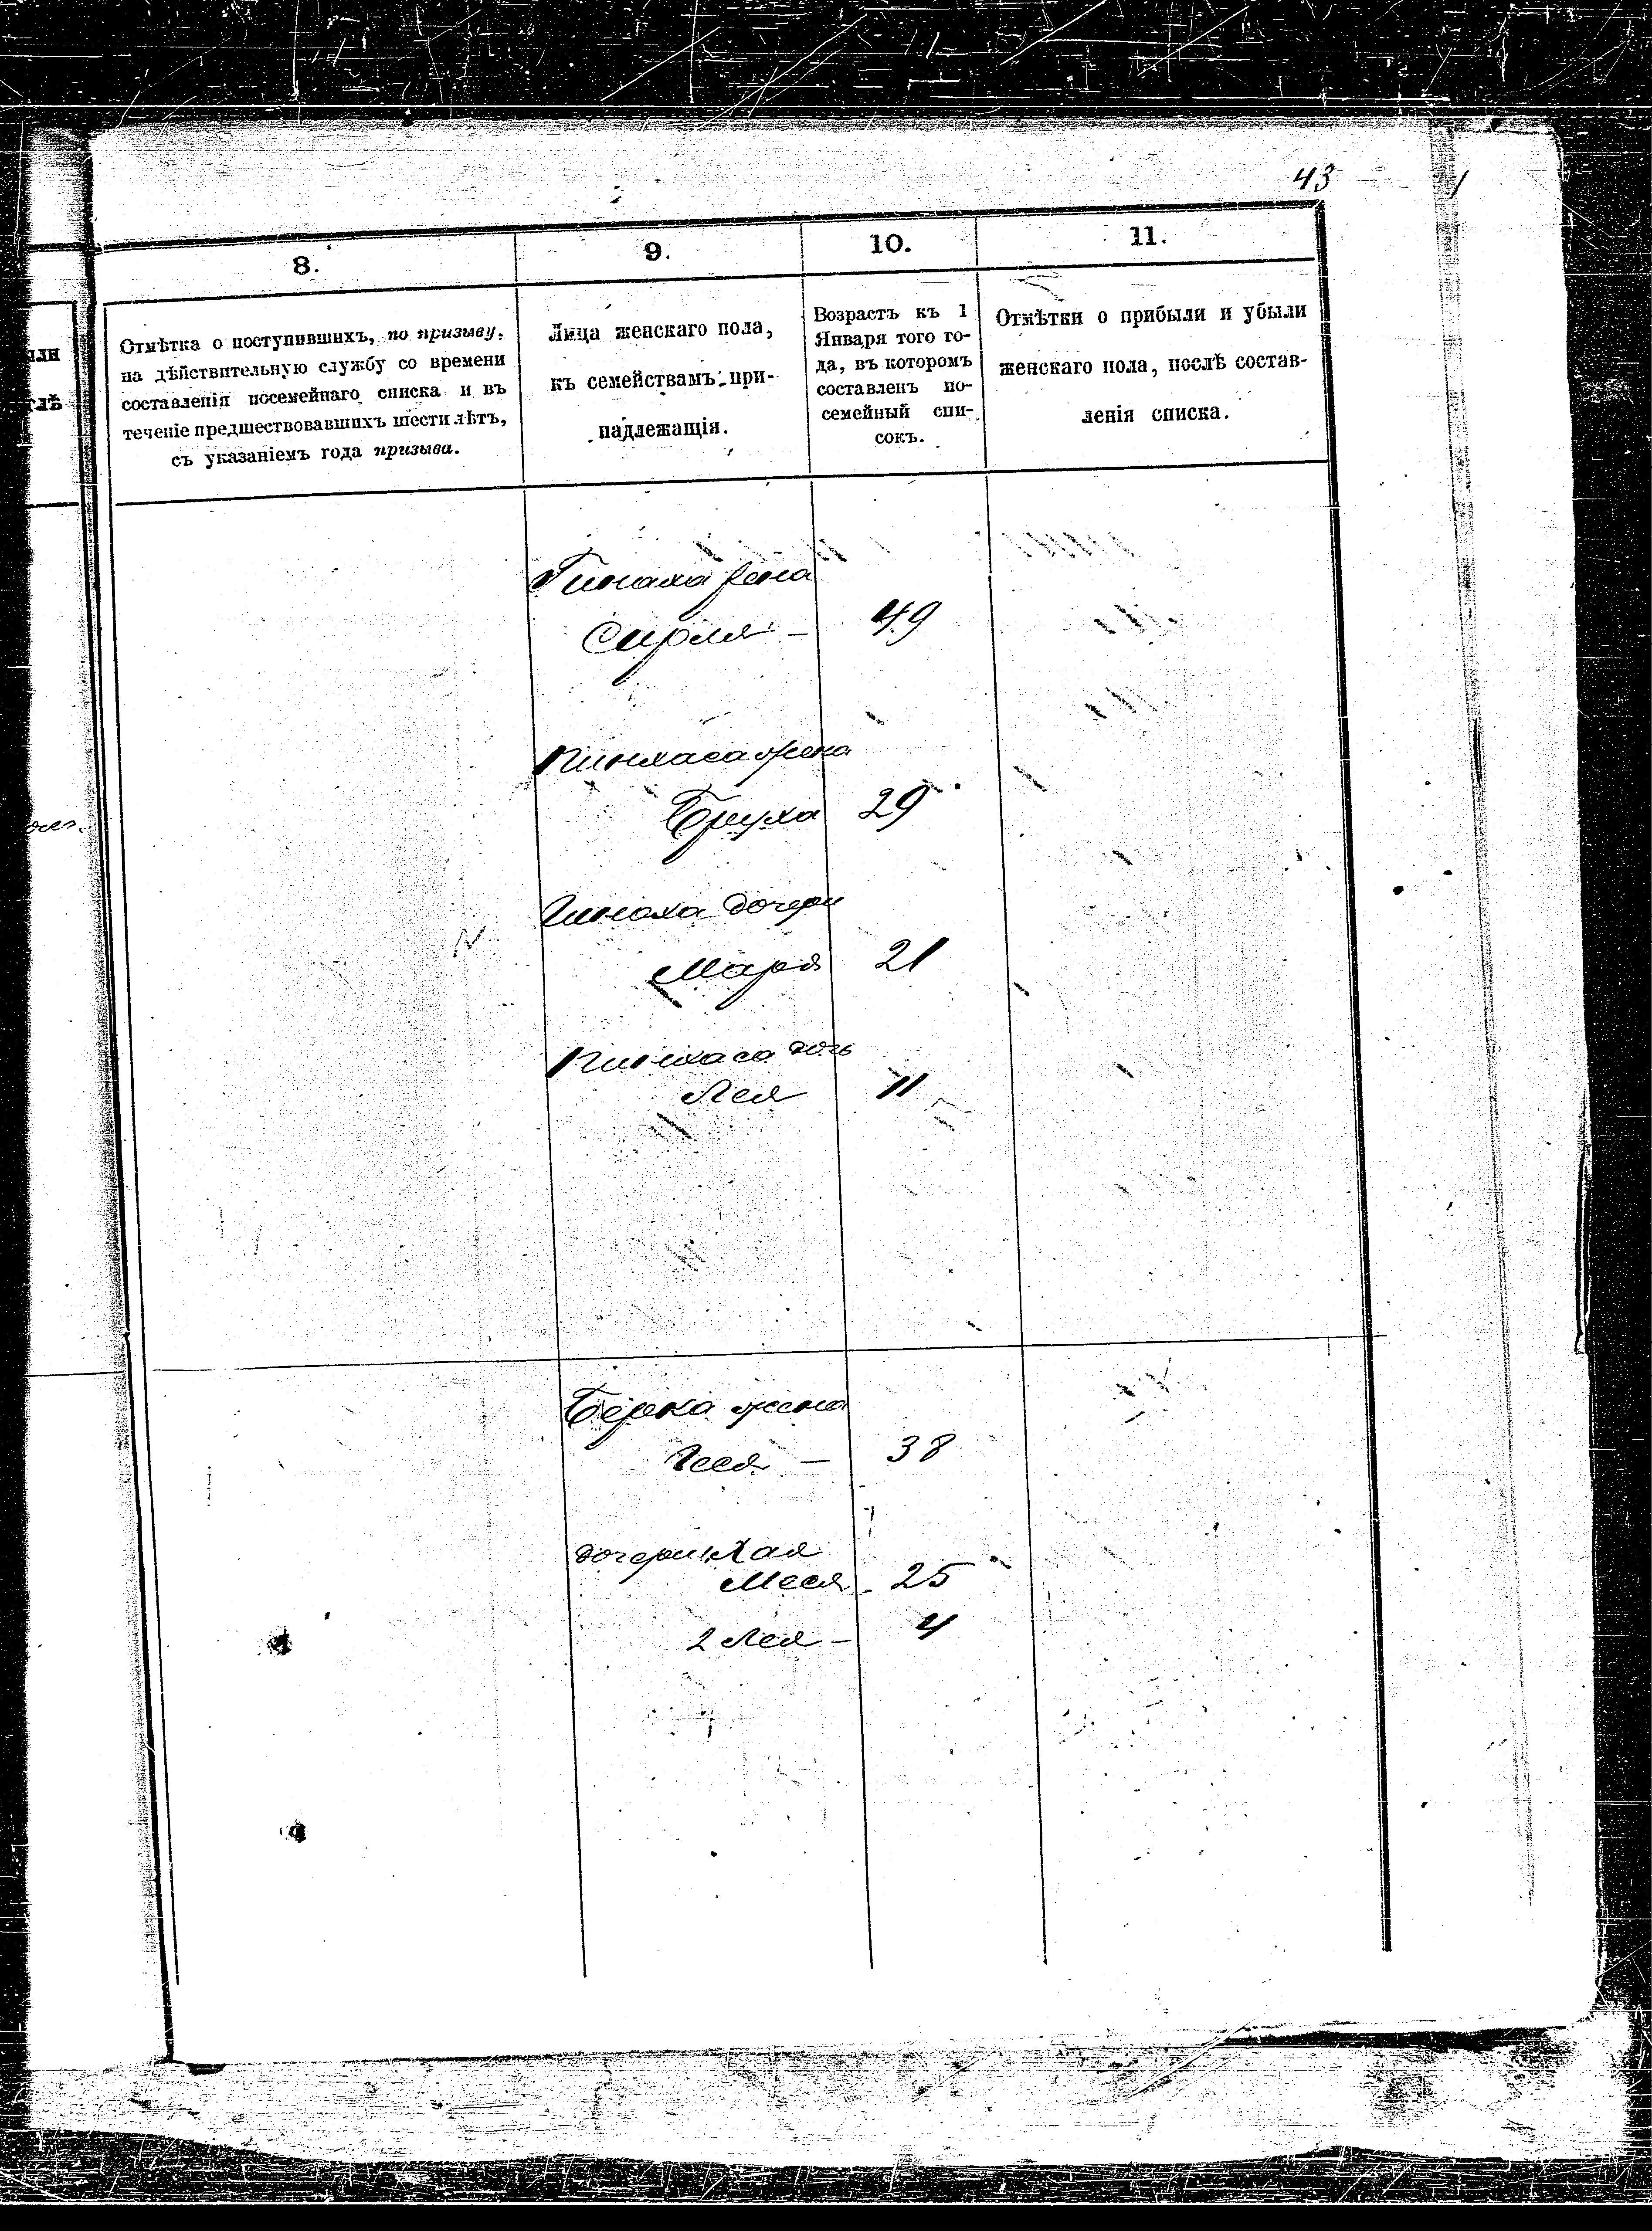 43
8.
9.
10.
11.
Отмѣтка о поступившихъ, по призыву,
на дѣйствительную службу со времени
составленія посемейнаго списка и въ
теченіе предшествовавшихъ шести лѣтъ,
съ указаніемъ года призыва.
Лица женскаго пола,
къ семействамъ при-
надлежащія.
Возрастъ къ 1
Января того го-
да, въ которомъ
составленъ по-
семейный спи-
сокъ.
Отмѣтки о прибыли и убыли
женскаго пола, послѣ состав-
ленія списка.
жена
Сирля - 49
Пинхаса жена
Бруха 29
дочери
Маря 21
Пинхаса дочь
Лея 11
Берка жена
38
дочери Хая
Меся 25
2 Лея - 4